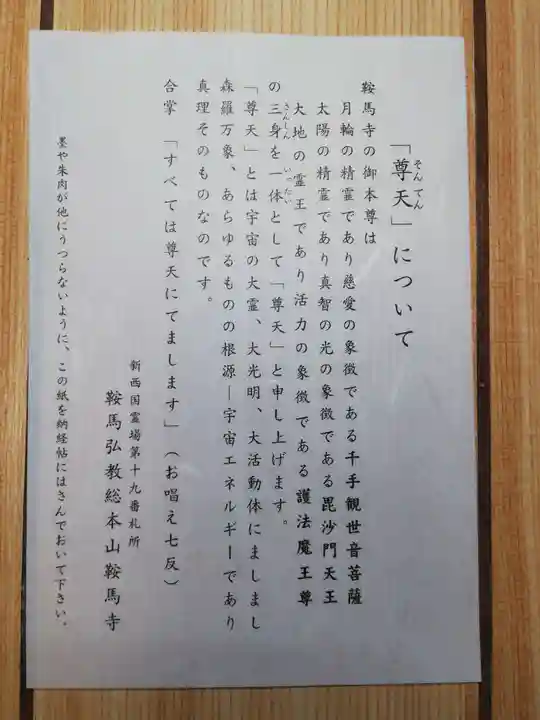 「尊天」について
そんてん
鞍馬寺の御本尊は
月輪の精霊であり慈愛の象徴である千手観世音菩薩
太陽の精霊であり真智の光の象徴である毘沙門天王
大地の霊王であり活力の象徴である護法魔王尊
の三身を一体として「尊天」と申し上げます。
さんしん いったい
「尊天」とは宇宙の大霊、大光明、大活動体にましまし
森羅万象、あらゆるものの根源―宇宙エネルギーであり
真理そのものなのです。
合掌 「すべては尊天にてまします」（お唱え七反）
新西国霊場第十九番札所
鞍馬弘教総本山鞍馬寺
墨や朱肉が他にうつらないように、この紙を納経帖にはさんでおいて下さい。